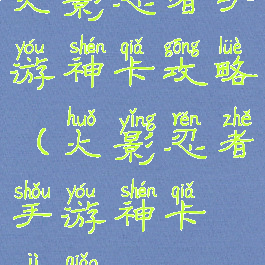 火影忍者手
yóu shén qiǎ gōng lüè
游神卡攻略
huǒ yǐng rěn zhě
(火影忍者
shǒu yóu shén qiǎ
手游神卡